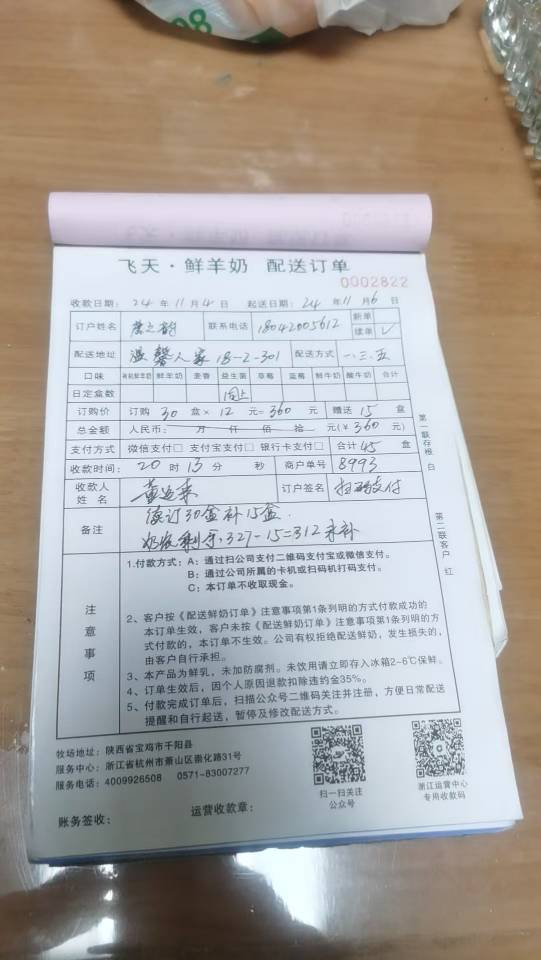 飞天·鲜羊奶 配送订单
0002822
收款日期: 24 年 11 月 4 日 起送日期: 24 年 11 月 6 日
订户姓名 联系电话 18042005612 新单 续单 ✓
配送地址 温馨人家 18-2-301 配送方式 一.三.五
口味 鲜羊奶 麦香 益生菌 草莓 蓝莓 鲜牛奶 酸牛奶 合计
日定盒数 同上
订购价 订购 30 盒 × 12 元=360 元 赠送 15 盒
总金额 人民币: 万 仟 佰 拾 元(¥ 360 元)
支付方式 微信支付□ 支付宝支付□ 银行卡支付□ 合计 45 盒
收款时间: 20 时 13 分 秒 商户单号 8993
收款人姓名 订户签名 扫码支付
备注 续订30盒补15盒.
奶后剩余:327-15=312未补
第一联存根 白
第二联客户 红
注意事项
1.付款方式: A: 通过扫公司支付二维码支付宝或微信支付。
B: 通过公司所属的卡机或扫码机打码支付。
C: 本订单不收取现金。
2、客户按《配送鲜奶订单》注意事项第1条列明的方式付款成功的
本订单生效,客户未按《配送鲜奶订单》注意事项第1条列明的方
式付款的,本订单不生效。公司有权拒绝配送鲜奶,发生损失的,
由客户自行承担。
3、本产品为鲜乳,未加防腐剂。未饮用请立即存入冰箱2-6℃保鲜。
4、订单生效后,因个人原因退款扣除违约金35%。
5、付款完成订单后,扫描公众号二维码关注并注册,方便日常配送
提醒和自行起送,暂停及修改配送方式。
牧场地址: 陕西省宝鸡市千阳县
服务中心: 浙江省杭州市萧山区崇化路31号
服务电话: 4009926508 0571-83007277
扫一扫关注
公众号
浙江运营中心
专用收款码
账务签收: 运营收款章: